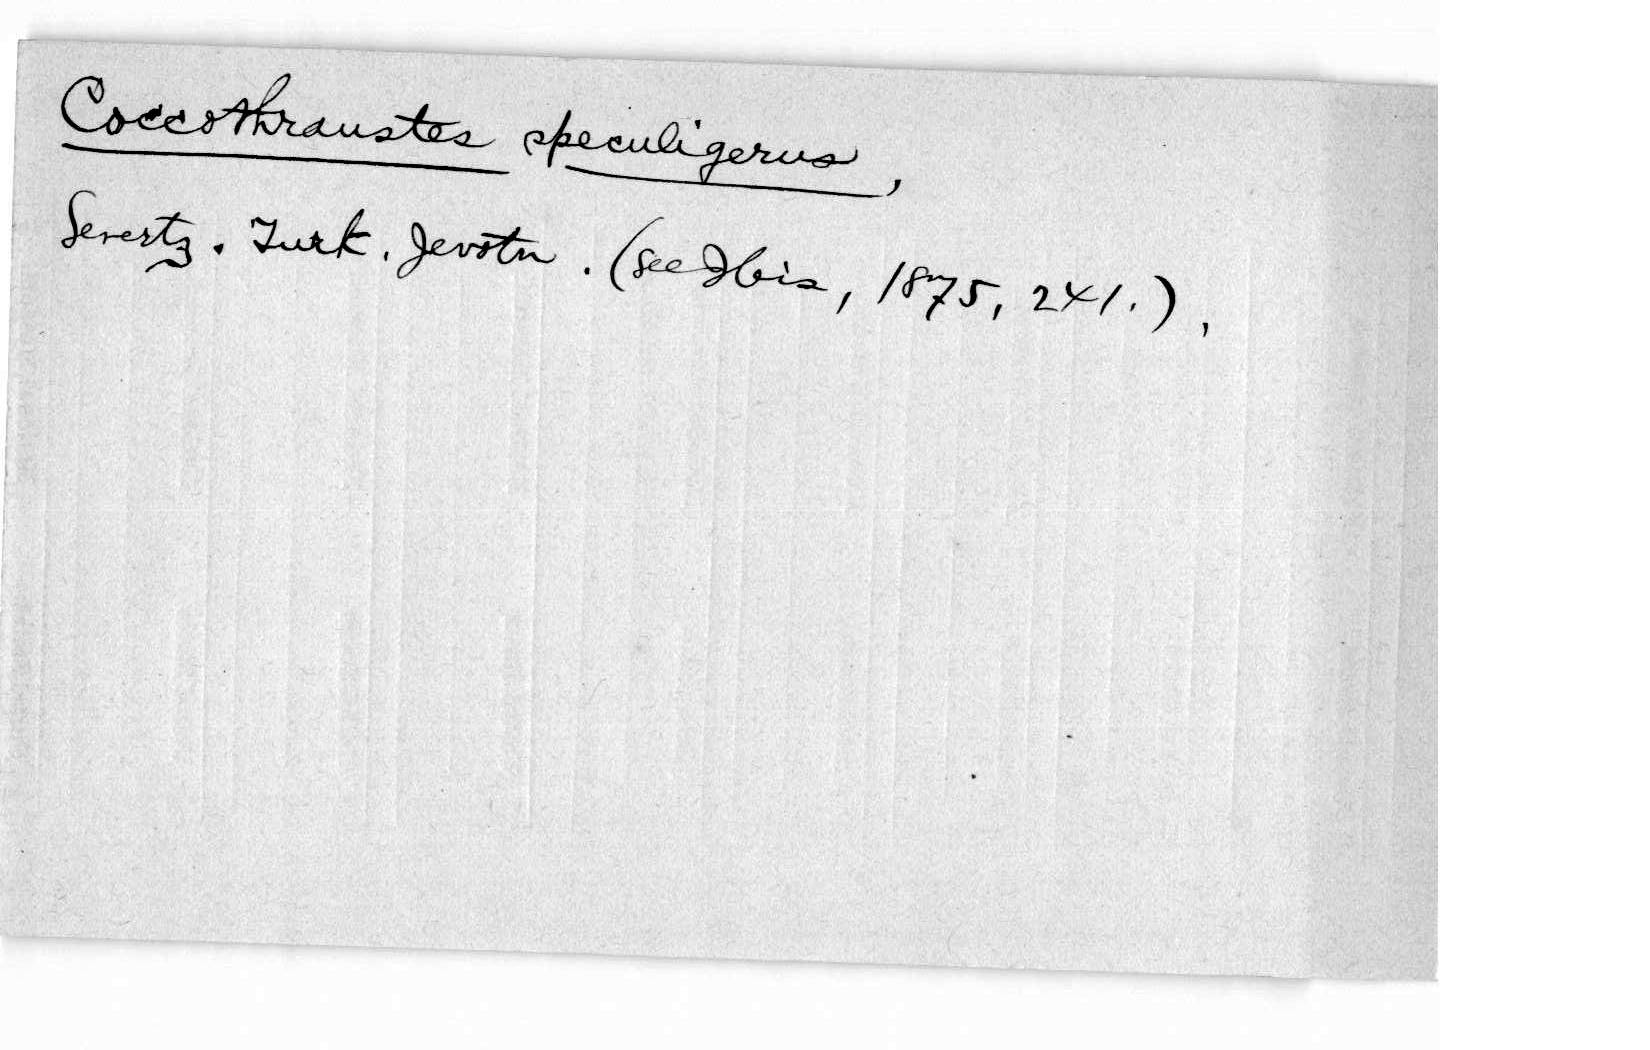 Coccothraustes speculigerus,
Severtz. Turk. Jevotn. (see Ibis, 1875, 241.),